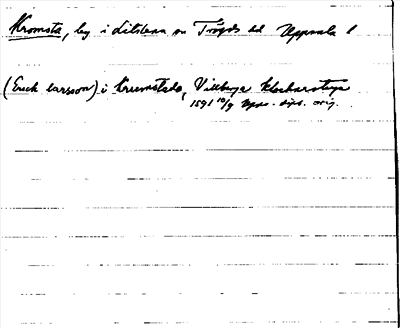 Kromsta, by i Litslena sn Trögds hd Uppsala l
(Erich Larsson) i Krumstada, Villberga klockarstuga
1591 10/9 Upps. dipl. orig.